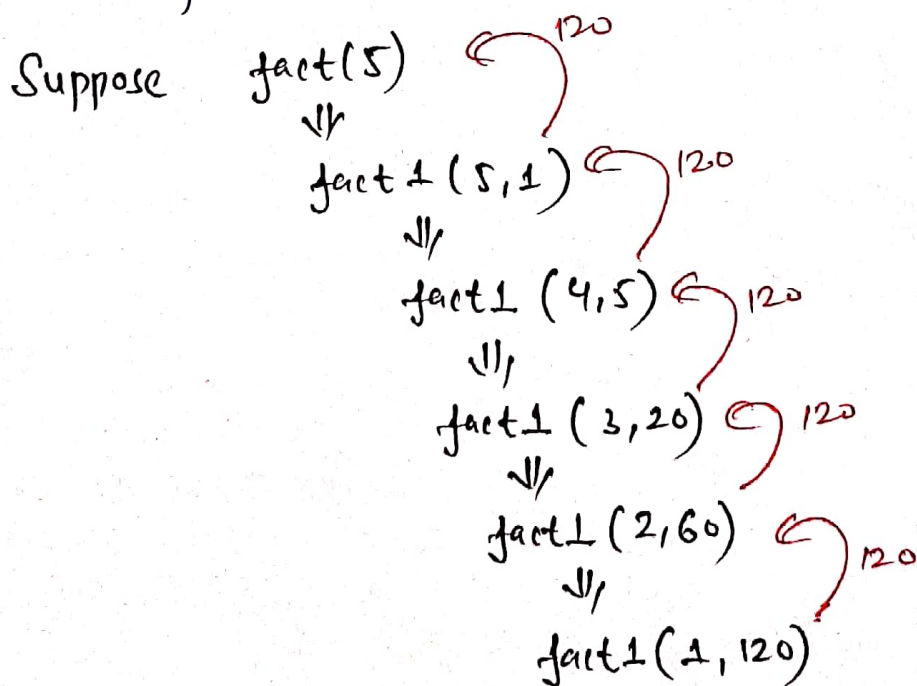 120
Suppose fact(5)
fact1(5,1) 120
fact1 (4,5) 120
fact1 (3,20) 120
fact1 (2,60) 120
fact1(1,120)